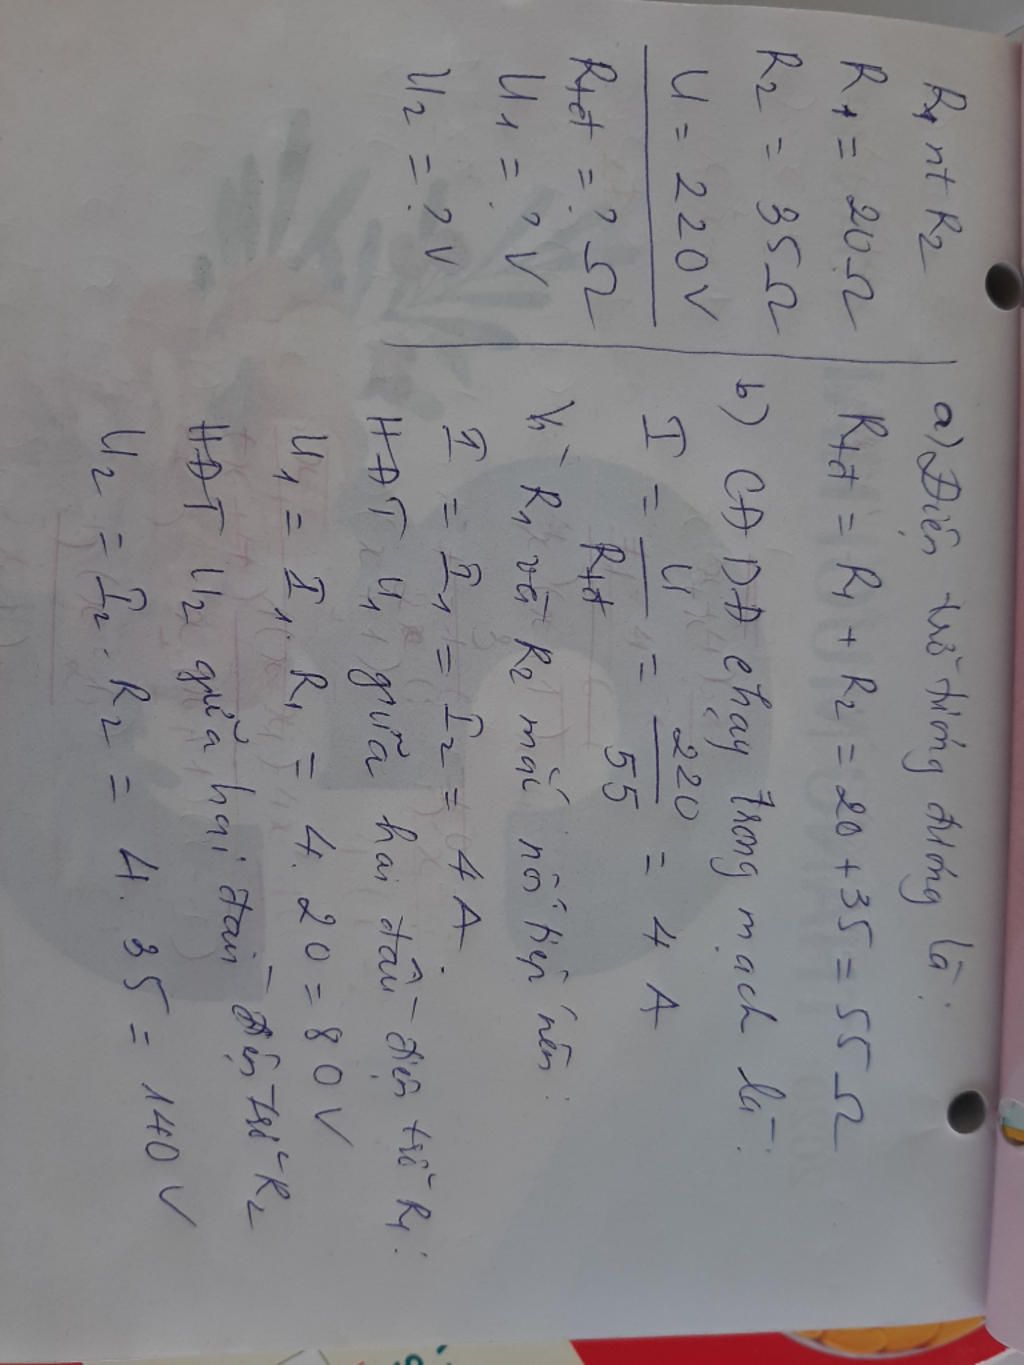 R1 nt R2
R1 = 20Ω
R2 = 35Ω
U = 220V
Rtđ = ? Ω
U1 = ? V
U2 = ? V
a) Điện trở tương đương là:
Rtđ = R1 + R2 = 20 + 35 = 55 Ω
b) CĐDĐ chạy trong mạch là:
I = U / Rtđ = 220 / 55 = 4 A
Vì R1 và R2 mắc nối tiếp nên:
I = I1 = I2 = 4 A.
HĐT U1 giữa hai đầu điện trở R1:
U1 = I1. R1 = 4. 20 = 80 V
HĐT U2 giữa hai đầu điện trở R2
U2 = I2. R2 = 4. 35 = 140 V